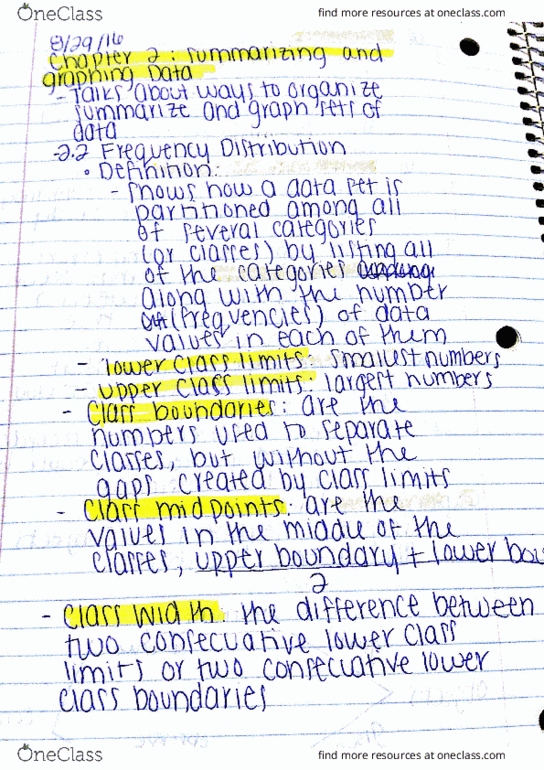 OneClass
find more resources at oneclass.com
8/29/16
Chapter 2: summarizing and
graphing Data
- Talks about ways to organize
summarize and graph sets of
data
-2.2 Frequency Distribution
• Definition:
- shows how a data set is
partitioned among all
of several categories
(or classes) by listing all
of the categories
along with the number
(frequencies) of data
values in each of them
- lower class limits: smallest numbers
- upper class limits: largest numbers
- Class boundaries: are the
numbers used to separate
classes, but without the
gaps created by class limits
- Class midpoints: are the
values in the middle of the
classes, upper boundary + lower bou
2
- Class width: the difference between
two consecuative lower class
limits or two consecuative lower
class boundaries
OneClass
find more resources at oneclass.com